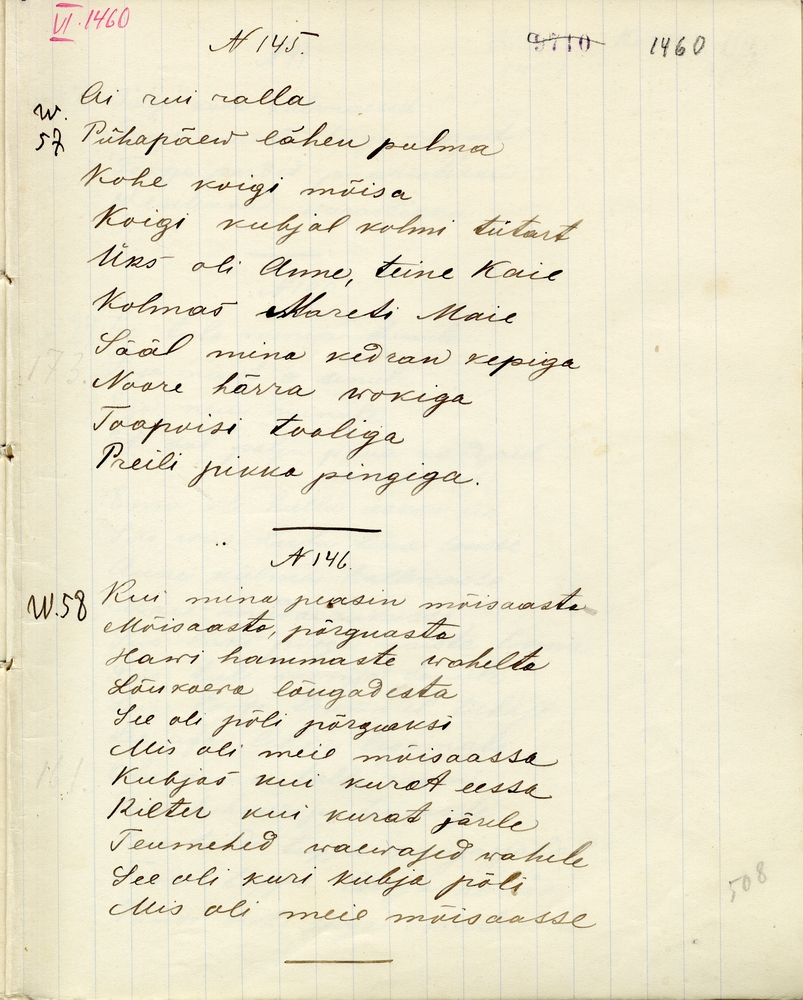 VI. 1460
N 145.
9710 1460
Ai rui ralla
W. 57 Pühapäew lähen pulma
Kohe koigi mõisa
Koigi kubjal kolmi tütart
Üks oli Anne, teine Kaie
Kolmas Mareti Maie
Sääl mina kedran kepiga
Noore härra wokiga
Toapoisi tooliga
Preili pikka pingiga.
N 146.
W. 58 Kui mina peasin mõisaasta
Mõisaasta, põrguasta
Hawi hammaste wahelta
Lõukoera lõugadesta
See oli põli põrguaksi
Mis oli meie mõisaassa
Kubjas kui kurat eessa
Kilter kui kurat järele
Teumehed waewajed wahele
See oli kuri kubja põli
Mis oli meie mõisaasse
508